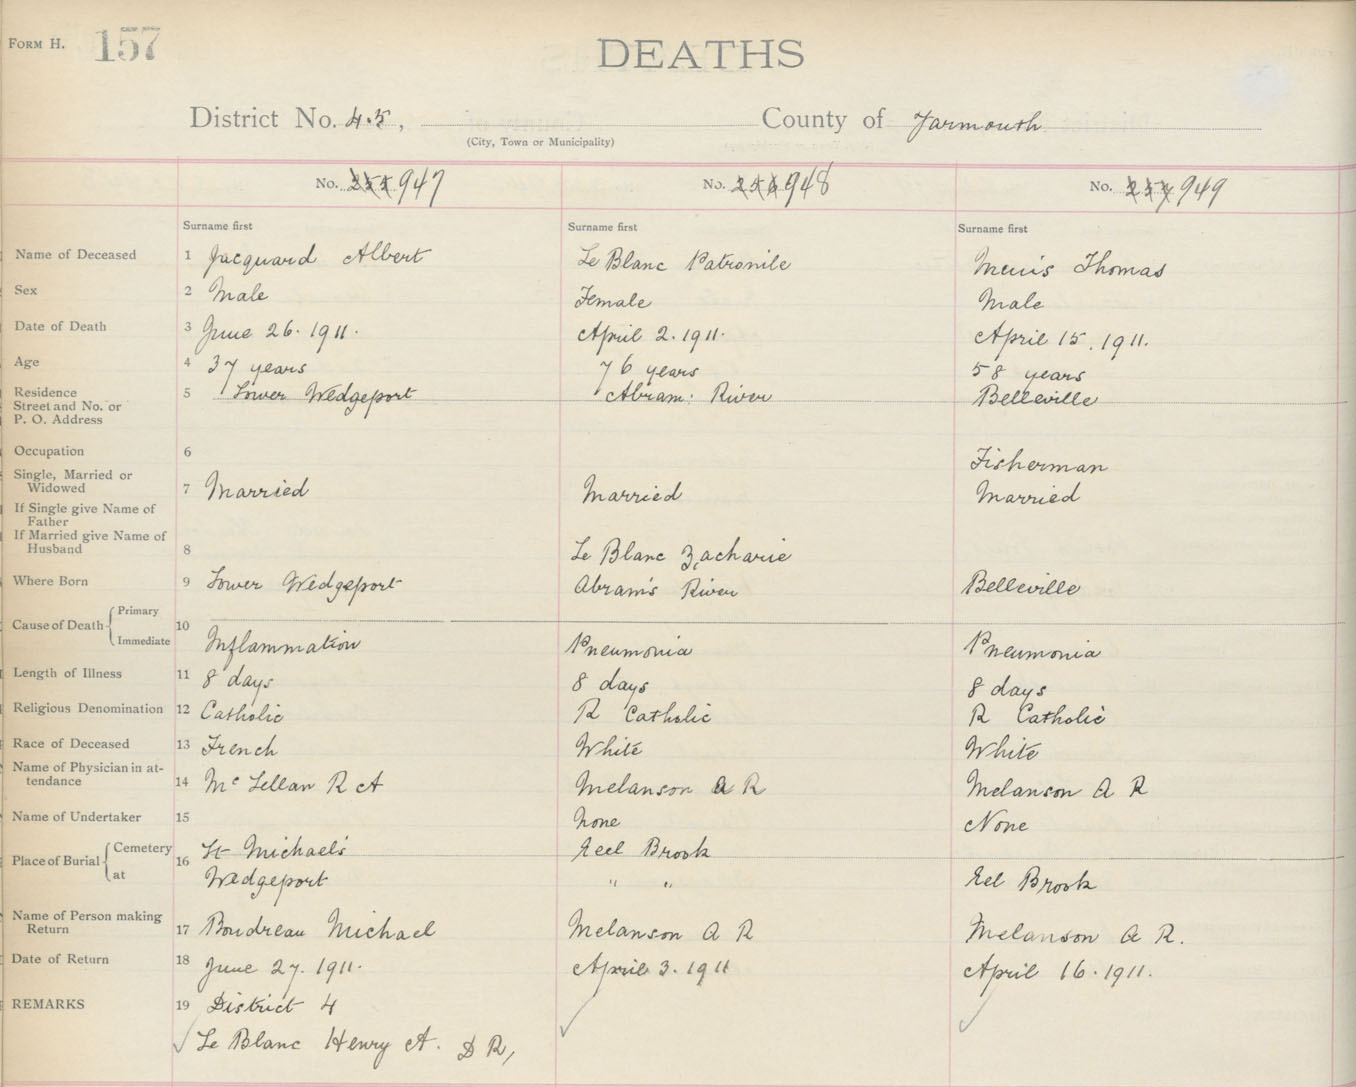 FORM H. 157
DEATHS
District No. 4.5, County of Yarmouth
(City, Town or Municipality)
No. 947 No. 948 No. 949
Surname first Surname first Surname first
Name of Deceased 1 Jacquard Albert Le Blanc Patronile Meuis Thomas
Sex 2 Male Female Male
Date of Death 3 June 26. 1911. April 2. 1911. April 15. 1911.
Age 4 37 years 76 years 58 years
Residence
Street and No. or 5 Lower Wedgeport Abram: River Belleville
P. O. Address
Occupation 6 Fisherman
Single, Married or
Widowed 7 Married Married Married
If Single give Name of
Father
If Married give Name of
Husband 8 Le Blanc Zacharie
Where Born 9 Lower Wedgeport Abram's River Belleville
Primary
Cause of Death 10
Immediate Inflammation Pneumonia Pneumonia
Length of Illness 11 8 days 8 days 8 days
Religious Denomination 12 Catholic R Catholic R Catholic
Race of Deceased 13 French White White
Name of Physician in at-
tendance 14 Mc Lellan R A Melanson A R Melanson A R
Name of Undertaker 15 none None
Cemetery St Michael's Eel Brook
Place of Burial 16
at Wedgeport " " Eel Brook
Name of Person making
Return 17 Boudreau Michael Melanson A R Melanson A R.
Date of Return 18 June 27. 1911. April 3. 1911 April 16. 1911.
REMARKS 19 District 4
Le Blanc Henry A. D R,